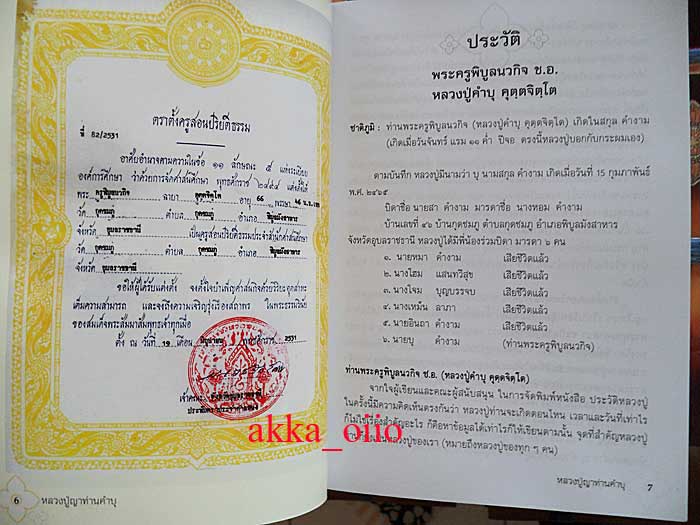 ตราตั้งครูสอนปริยัติธรรม
ที่ 82/2531
อาศัยอำนาจตามความในข้อ ๑๑ ลักษณะ ๕ แห่งระเบียบ
องค์การศึกษา ว่าด้วยการจัดศาสน์ศึกษา พุทธศักราช ๒๔๙๔ แต่งตั้งให้
พระ ครูพิบูลนวกิจ ฉายา คุตฺตจิตฺโต อายุ 66 พรรษา 46 น.ธ.
วัด กุดชมภู ตำบล กุดชมภู อำเภอ พิบูลมังสาหาร
จังหวัด อุบลราชธานี เป็นครูสอนปริยัติธรรมประจำสำนักศาสน์ศึกษา
วัด กุดชมภู ตำบล กุดชมภู อำเภอ พิบูลมังสาหาร
จังหวัด อุบลราชธานี
ขอให้ผู้ได้รับแต่งตั้ง จงตั้งใจบำเพ็ญศาสกิจด้วยวิริยะอุตสาหะ
เต็มความสามารถ และจงถึงความเจริญรุ่งเรืองสถาพร ในพระธรรมวินัย
ของสมเด็จพระสัมมาสัมพุทธเจ้าทุกเมื่อ
ตั้ง ณ วันที่ 19 เดือน มิถุนายน พุทธศักราช 2531
6 หลวงปู่ญาท่านคำบุ
ประวัติ
พระครูพิบูลนวกิจ ช.อ.
หลวงปู่คำบุ คุตฺตจิตฺโต
ชาติภูมิ : ท่านพระครูพิบูลนวกิจ (หลวงปู่คำบุ คุตฺตจิตฺโต) เกิดในสกุล คำงาม
(เกิดเมื่อวันจันทร์ แรม ๑๐ ค่ำ ปีจอ ตรงนี้หลวงปู่บอกกับกระผมเอง)
ตามบันทึก หลวงปู่มีนามว่า บุ นามสกุล คำงาม เกิดเมื่อวันที่ 15 กุมภาพันธ์
พ.ศ. ๒๔๖๕
บิดาชื่อ นายสา คำงาม มารดาชื่อ นางหอม คำงาม
บ้านเลขที่ ๔๖ บ้านกุดชมภู ตำบลกุดชมภู อำเภอพิบูลมังสาหาร
จังหวัดอุบลราชธานี หลวงปู่ได้มีพี่น้องร่วมบิดา มารดา ๖ คน
๑. นายหมา คำงาม เสียชีวิตแล้ว
๒. นางโฮม แสนทวีสุข เสียชีวิตแล้ว
๓. นางโจม บุญบรรจบ เสียชีวิตแล้ว
๔. นางเหม็น ลาภา เสียชีวิตแล้ว
๕. นายอินถา คำงาม เสียชีวิตแล้ว
๖. นายบุ คำงาม (ท่านพระครูพิบูลนวกิจ)
ท่านพระครูพิบูลนวกิจ ช.อ. (หลวงปู่คำบุ คุตฺตจิตฺโต)
จากใจผู้เขียนและคณะผู้สนับสนุน ในการจัดพิมพ์หนังสือ ประวัติหลวงปู่
ในครั้งนี้มีความคิดเห็นตรงกันว่า หลวงปู่ท่านจะเกิดตอนไหน เวลาและวันที่เท่าไร
ก็ไม่ใช่เรื่องสำคัญอะไร ก็คือหาข้อมูลได้เท่าไรก็ให้เขียนตามนั้น จุดที่สำคัญหลวงปู่
เป็นหลวงปู่ของเรา (หมายถึงหลวงปู่ของทุก ๆ คน)
หลวงปู่ญาท่านคำบุ 7
akka_oiio